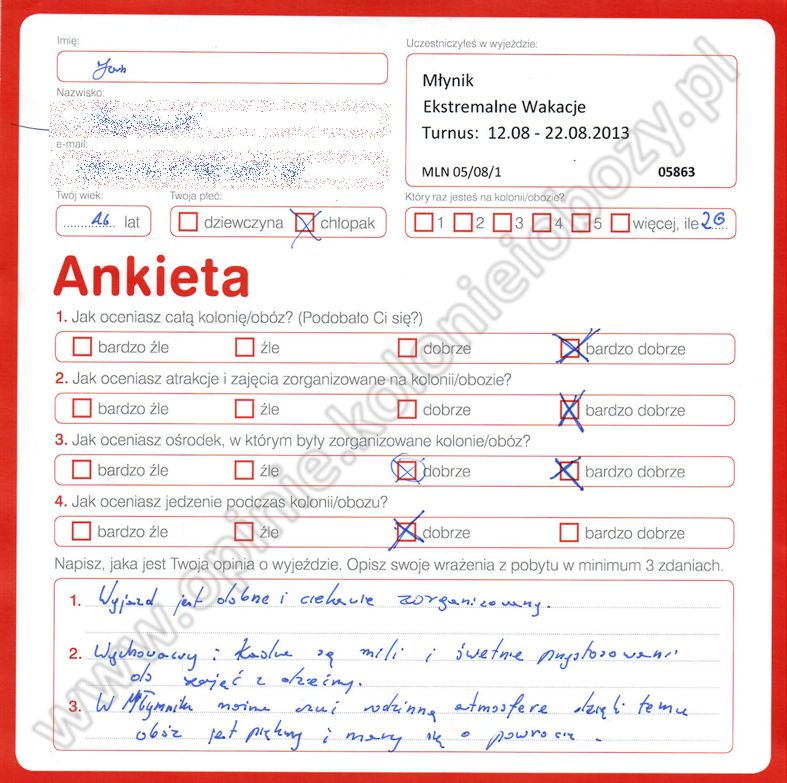 Imię:
Uczestniczyłeś w wyjeździe:
Młynik
Ekstremalne Wakacje
Turnus: 12.08 - 22.08.2013
MLN 05/08/1 05863
Nazwisko:
e-mail:
Twój wiek: Twoja płeć: Który raz jesteś na kolonii/obozie?
16 lat dziewczyna chłopak 1 2 3 4 5 więcej, ile 26
Ankieta
1. Jak oceniasz całą kolonię/obóz? (Podobało Ci się?)
bardzo źle źle dobrze bardzo dobrze
2. Jak oceniasz atrakcje i zajęcia zorganizowane na kolonii/obozie?
bardzo źle źle dobrze bardzo dobrze
3. Jak oceniasz ośrodek, w którym były zorganizowane kolonie/obóz?
bardzo źle źle dobrze bardzo dobrze
4. Jak oceniasz jedzenie podczas kolonii/obozu?
bardzo źle źle dobrze bardzo dobrze
Napisz, jaka jest Twoja opinia o wyjeździe. Opisz swoje wrażenia z pobytu w minimum 3 zdaniach.
1. Wyjazd jest dobrze i ciekawie zorganizowany.
2. Wychowawcy i Kadra są mili i świetnie przystosowani
do zajęć z dziećmi.
3. W Młynniku można czuć rodzinną atmosferę dzięki temu
obóz jest piękny i marzy się o powrocie.
www.opinie.kolonieiobozy.pl